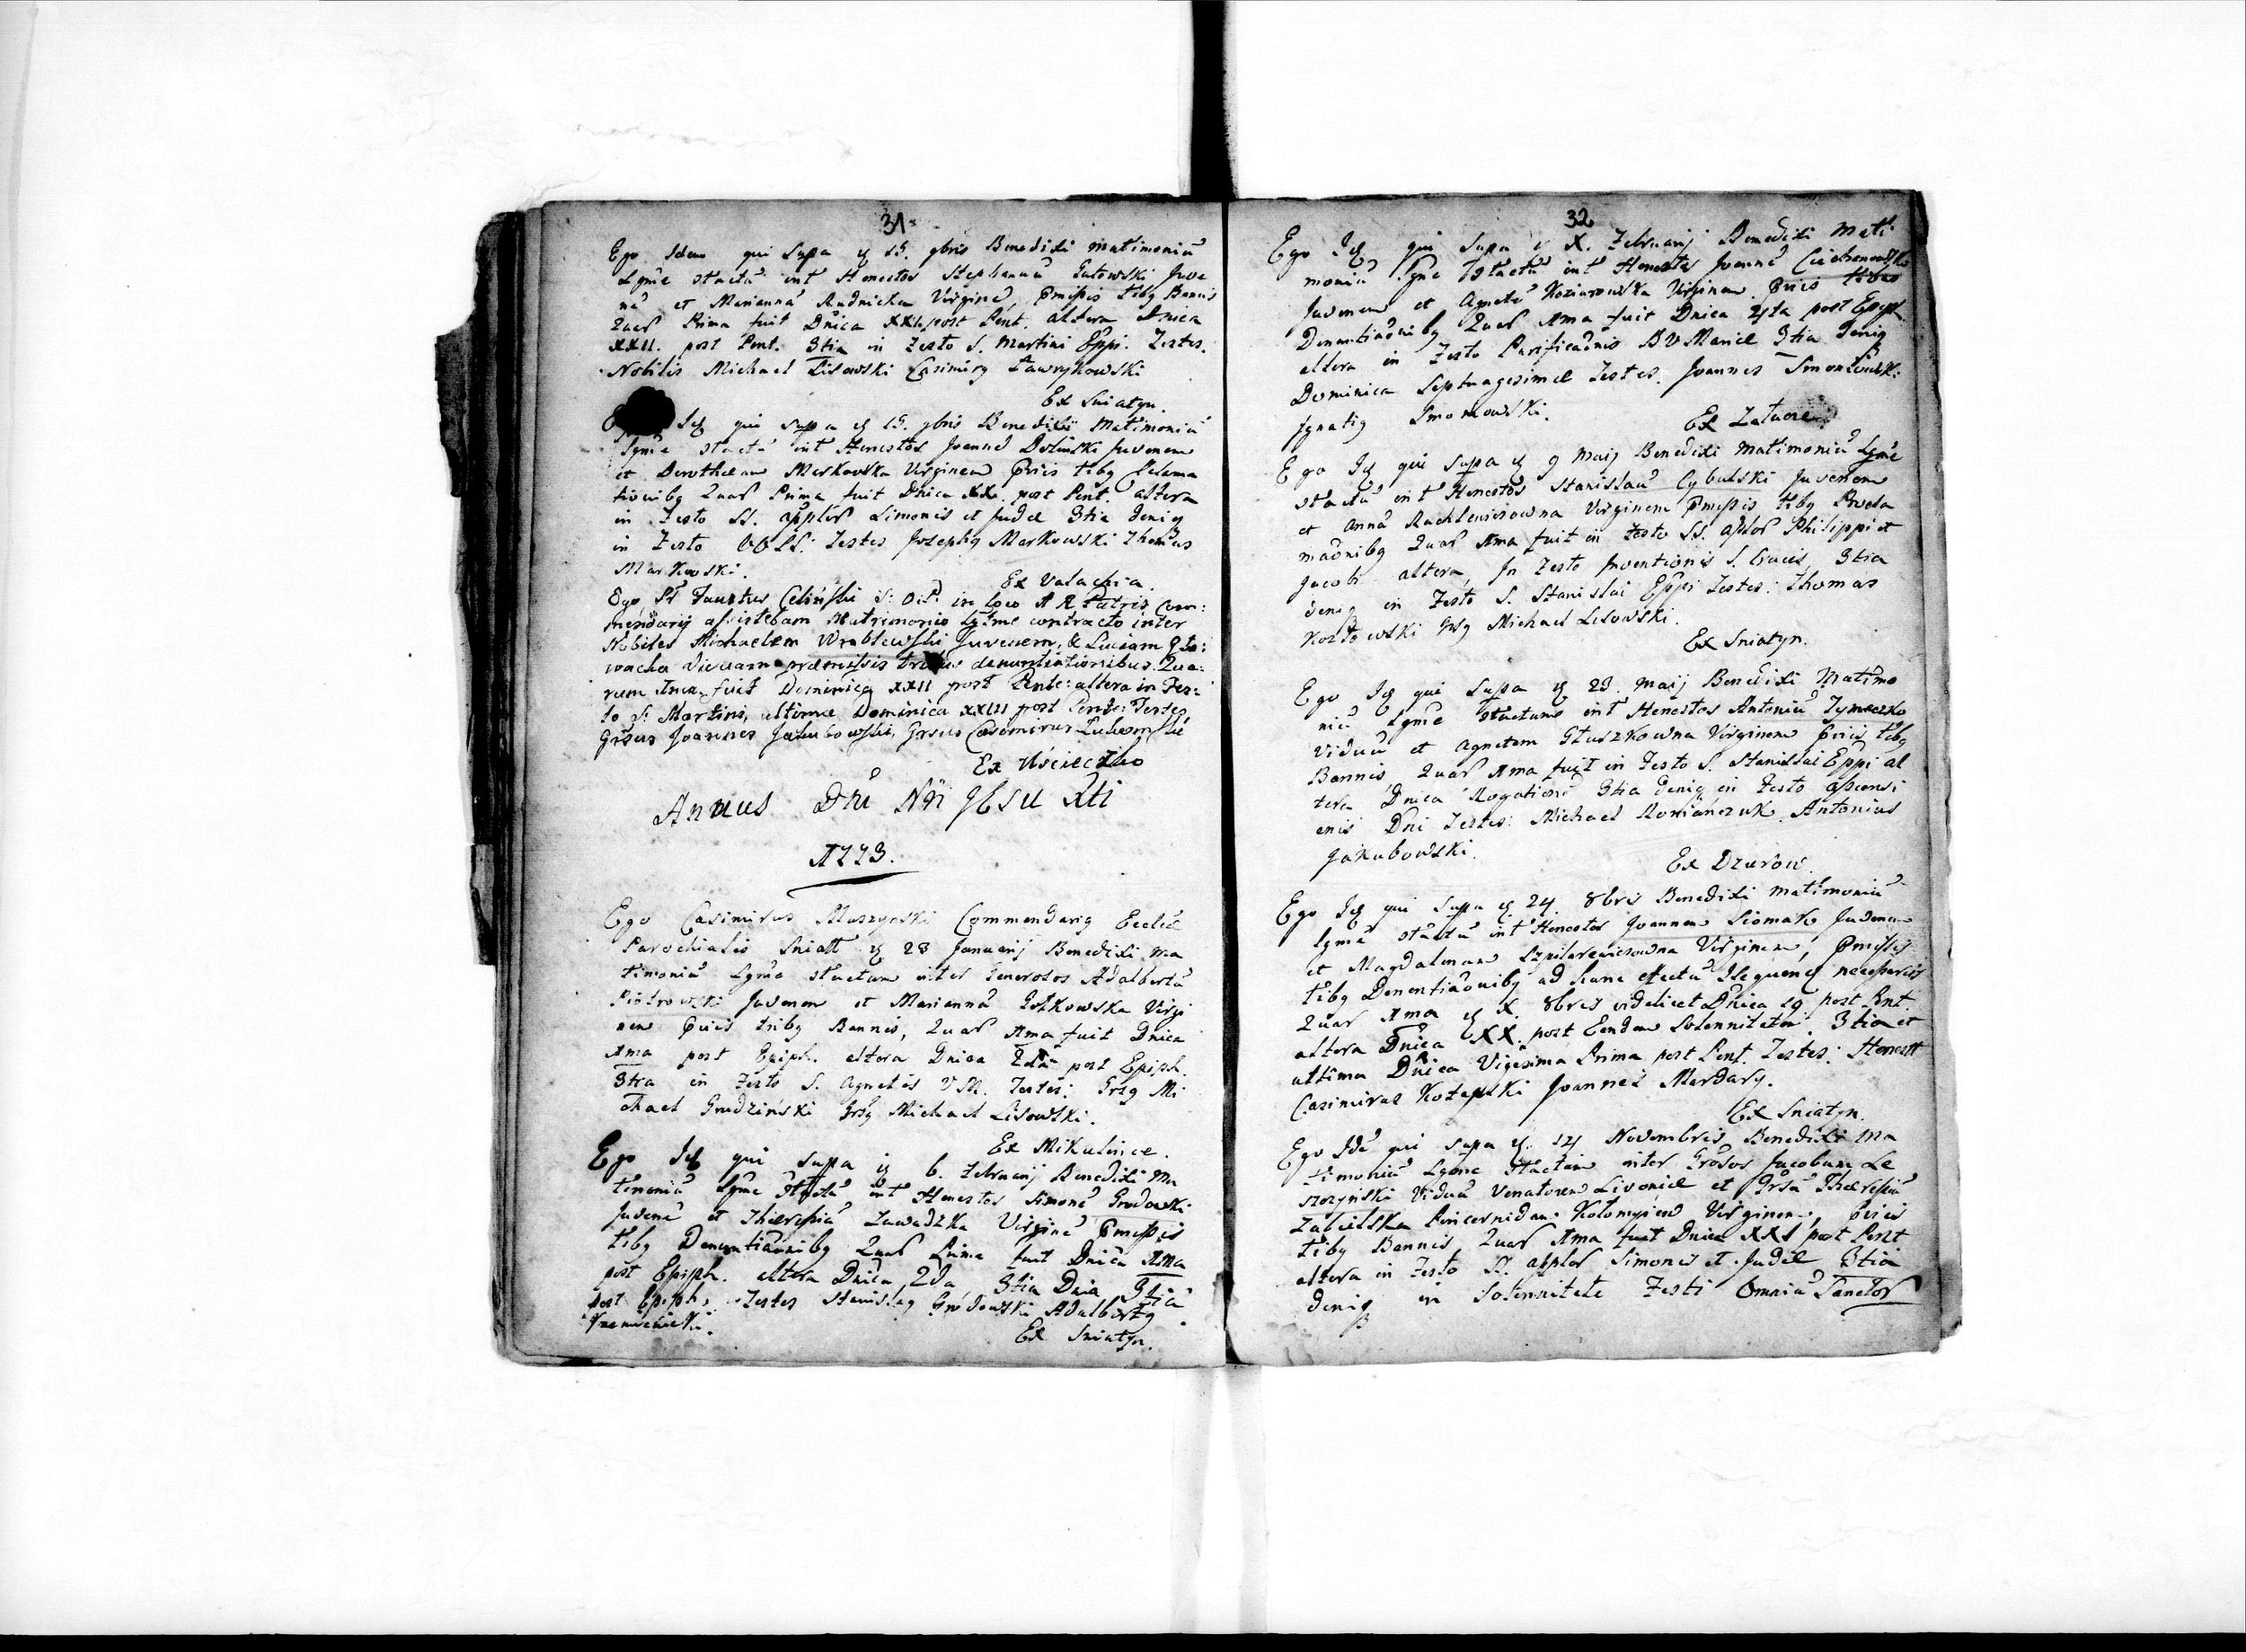 31
Ego Idem qui Supa 15. 9bris Benedixi matimoniũ
Lgme Stactũ int Honestos Stephanũ Gutowski Juve
nẽ et Mariannã Rudnicka Virginẽ, pmissis tibg Bannis
Quar Prima fuit Dnica XXI. post Pent. altera Dnica
XXII. post Pent. 3tia in Festo S. Martini Eppi. Testes.
Nobilis Michael Lisowski Casimirg Ławrykowski
Ex Sniatyn.
qui supa 15. 9bris Benedixi Matimoniũ
Lgme Stactũ int Honestos Joannẽ Doliński Juvenem
et Dorotheam Markowska Virginem tibg Proclama
tionibg Quar Prima fuit Dnica XX. post Pent. altera
in Festo SS. applor Simonis et Judæ 3tia deniq
in Festo OOSS. Testes Josephg Markowski Thomas
Markowski.
Ex Valachia.
Ego Fr Faustus Celiński S: O:P: in loco A R Patris Com:
mendarij assistebam Matrimonio lgtme contracto inter
Nobiles Michaelem Wroblewski Juvenem, & Luciam
Viduam præmissis tribus denuntiationibus. Qua:
rum 1ma fuit Dominica XXII post Pente: altera in Fes:
to S: Martini, ultima Dominica XXIII post Pente: Testes
Grsus Joannes Jakubowski, Grsus Casimirus
Ex Uścieczko
Annus Dni Nri JESU Xti
1773.
Ego Casimirus Muszynski Commendarig Ecclæ
Parochialis Sniatt 28 Januarij Benedixi Ma
timoniũ Lgme Stactum inter Generosos Adalbertũ
Piotrowski Juvenem et Mariannã Gołkowska Virgi
nem tribg Bannis, Quar 1ma fuit Dnica
1ma post Epiph. altera Dnica 2da post Epiph.
3tia in Festo S. Agnetis V M. Testes: Grsg Mi
chael Grudziński Grsg Michael Lisowski.
Ex Mikulince.
Ego Id qui supa 6. Februarij Benedixi Ma
timoniũ Lgme Stactũ int Honestos Simonẽ Grodowski
Juvenẽ et Theresiã Zawadzka Virginẽ Pmissis
tibg Denuntiaõnibg Quar Prima fuit Dnica 1ma
post Epiph. altera Dnica 2da 3tia Dnia 3tia
post Epiph. Testes Stanislag Grodowski Adalbertg
Krzemienicki.
Ex Sniatyn.
32
Ego Id qui supa X. Februarij Benedixi Mati
moniũ Lgme Stactũ int Honestos Joannẽ Ciechanowski
Juvenem et Agnetẽ Koziarowska Virginem tibus
Denuntiaõnibg Quar 1ma fuit Dnica 4ta post Epiph
altera in Festo Purificaõnis B V Mariæ 3tia deniq
Dominica Septuagesimæ Testes. Joannes
Ignatig
Ex
Ego Id qui supa 9 Maij Benedixi matimoniũ Lgme
Stactũ int Honestos Stanislaũ Cybulski Juvenem
et Annã Rachlewiczowna Virginem Pmissis tibg Procla
maõnibg Quar 1ma fuit in Festo SS. aplor Philippi et
Jacobi altera, In Festo Inventionis S. Crucis, 3tia
deniq in Festo S. Stanislai Eppi Testes: Thomas
Kozłowski Grsg Michael Lisowski.
Ex Sniatyn.
Ego Id qui Supa 23. Maij Benedixi Matimo
niũ Lgme Stactum int Honestos Antoniũ Tymeczko
Viduũ et Agnetem Głuszkowna Virginem tibg
Bannis, Quar 1ma fuit in Festo S. Stanislai Eppi al
tera Dnica Rogationũ 3tia deniq in Festo Ascensi
onis Dni Testes: Michael Romańczuk Antonius
Jakubowski.
Ex Dzurow
Ego Id qui supa 24 8bris Benedixi matimoniũ
lgme Stactũ int Honestos Joannem Siomak Juvenem
et Magdalenam Szpilarewiczowna Virginem, Pmissis
tibg Denuntiaõnibg ad hunc effectũ necessariis
Quar 1ma X. 8bris videlicet Dnica 19 post Pent.
altera Dnica XX. post Eandem Solennitatem. 3tia et
ultima Dnica Vigesima Prima post Pent. Testes: Honestt
Casimirus Joannes Mardarg.
Ex Sniatyn.
Ego Idẽ qui supa 14 Novembris Benedixi Ma
timoniũ Lgme Stactum inter Grosos Jacobum Le
szczyński Viduũ Venatorem Livoniæ et Grsã Theresiã
Zalewska Pincernidam Kołomyien Virginem,
tibg Bannis, Quar 1ma fuit Dnica XXI post Pent
altera in Festo SS. applor Simonis et Judæ 3tia
deniq in Solennitate Festi Omniũ Sanctor